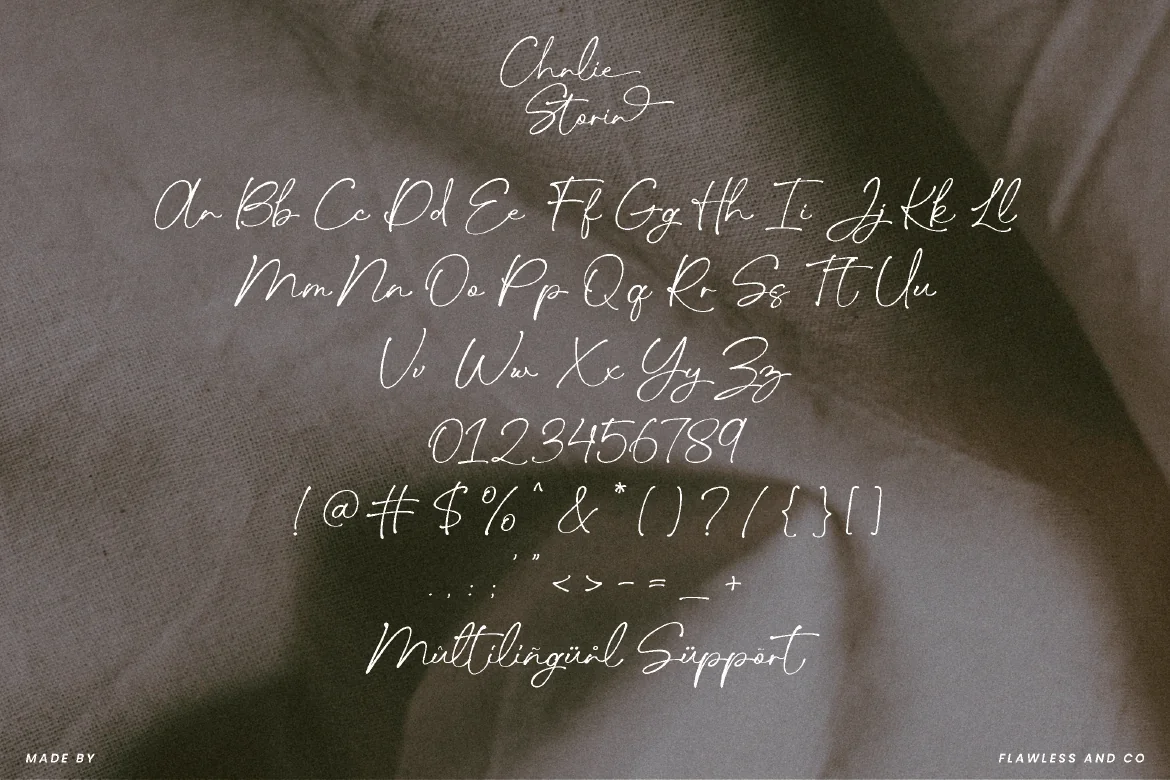 Chalie
Storin
Aa Bb Cc Dd Ee Ff Gg Hh Ii Jj Kk Ll
Mm Nn Oo Pp Qq Rr Ss Tt Uu
Vv Ww Xx Yy Zz
0123456789
! @ # $ % ^ & * ( ) ? / { } [ ]
. , : ; ' " < > - = _ +
Mûltilíñgüål Süppõrt
MADE BY
FLAWLESS AND CO